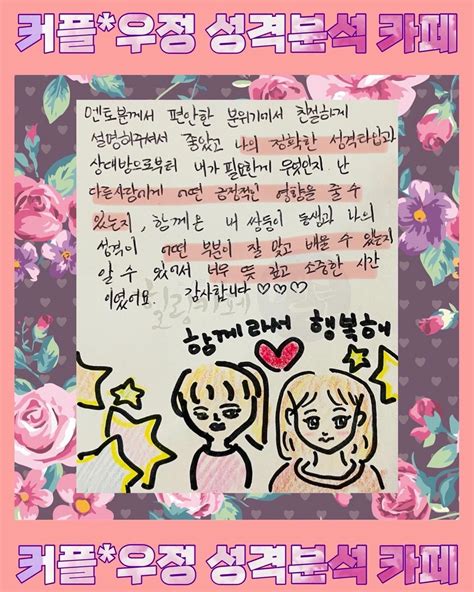 커플*우정 성격분석 카페
멘토분께서 편안한 분위기에서 친절하게
설명해주셔서 좋았고 나의 정확한 성격타입과
상대방으로부터 내가 필요한게 무엇인지 난
다른사람에게 어떤 긍정적인 영향을 줄 수
있는지, 함께온 내 쌍둥이 동생과 나의
성격이 어떤 부분이 잘 맞고 배울 수 있는지
알 수 있어서 너무 뜻 깊고 소중한 시간
이였어요 감사합니다 ♡♡♡
힐링카페
함께라서 행복해
커플*우정 성격분석 카페